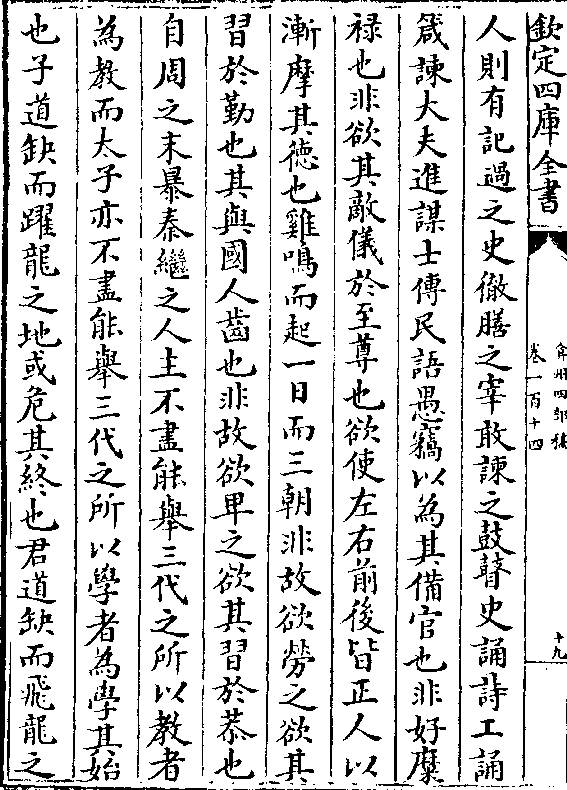 欽定四庫全書
弇州四部稿
卷一百十四
十九
人則有記過之史徹膳之宰敢諫之鼓瞽史誦詩工誦
箴諫大夫進謀士傳民語愚竊以為其備官也非好糜
祿也非欲其敵儀於至尊也欲使左右前後皆正人以
漸摩其徳也雞鳴而起一日而三朝非故欲勞之欲其
習於勤也其與國人齒也非故欲卑之欲其習於恭也
自周之末暴秦繼之人主不盡能舉三代之所以教者
為教而太子亦不盡能舉三代之所以學者為學其始
也子道缺而躍龍之地或危其終也君道缺而飛龍之